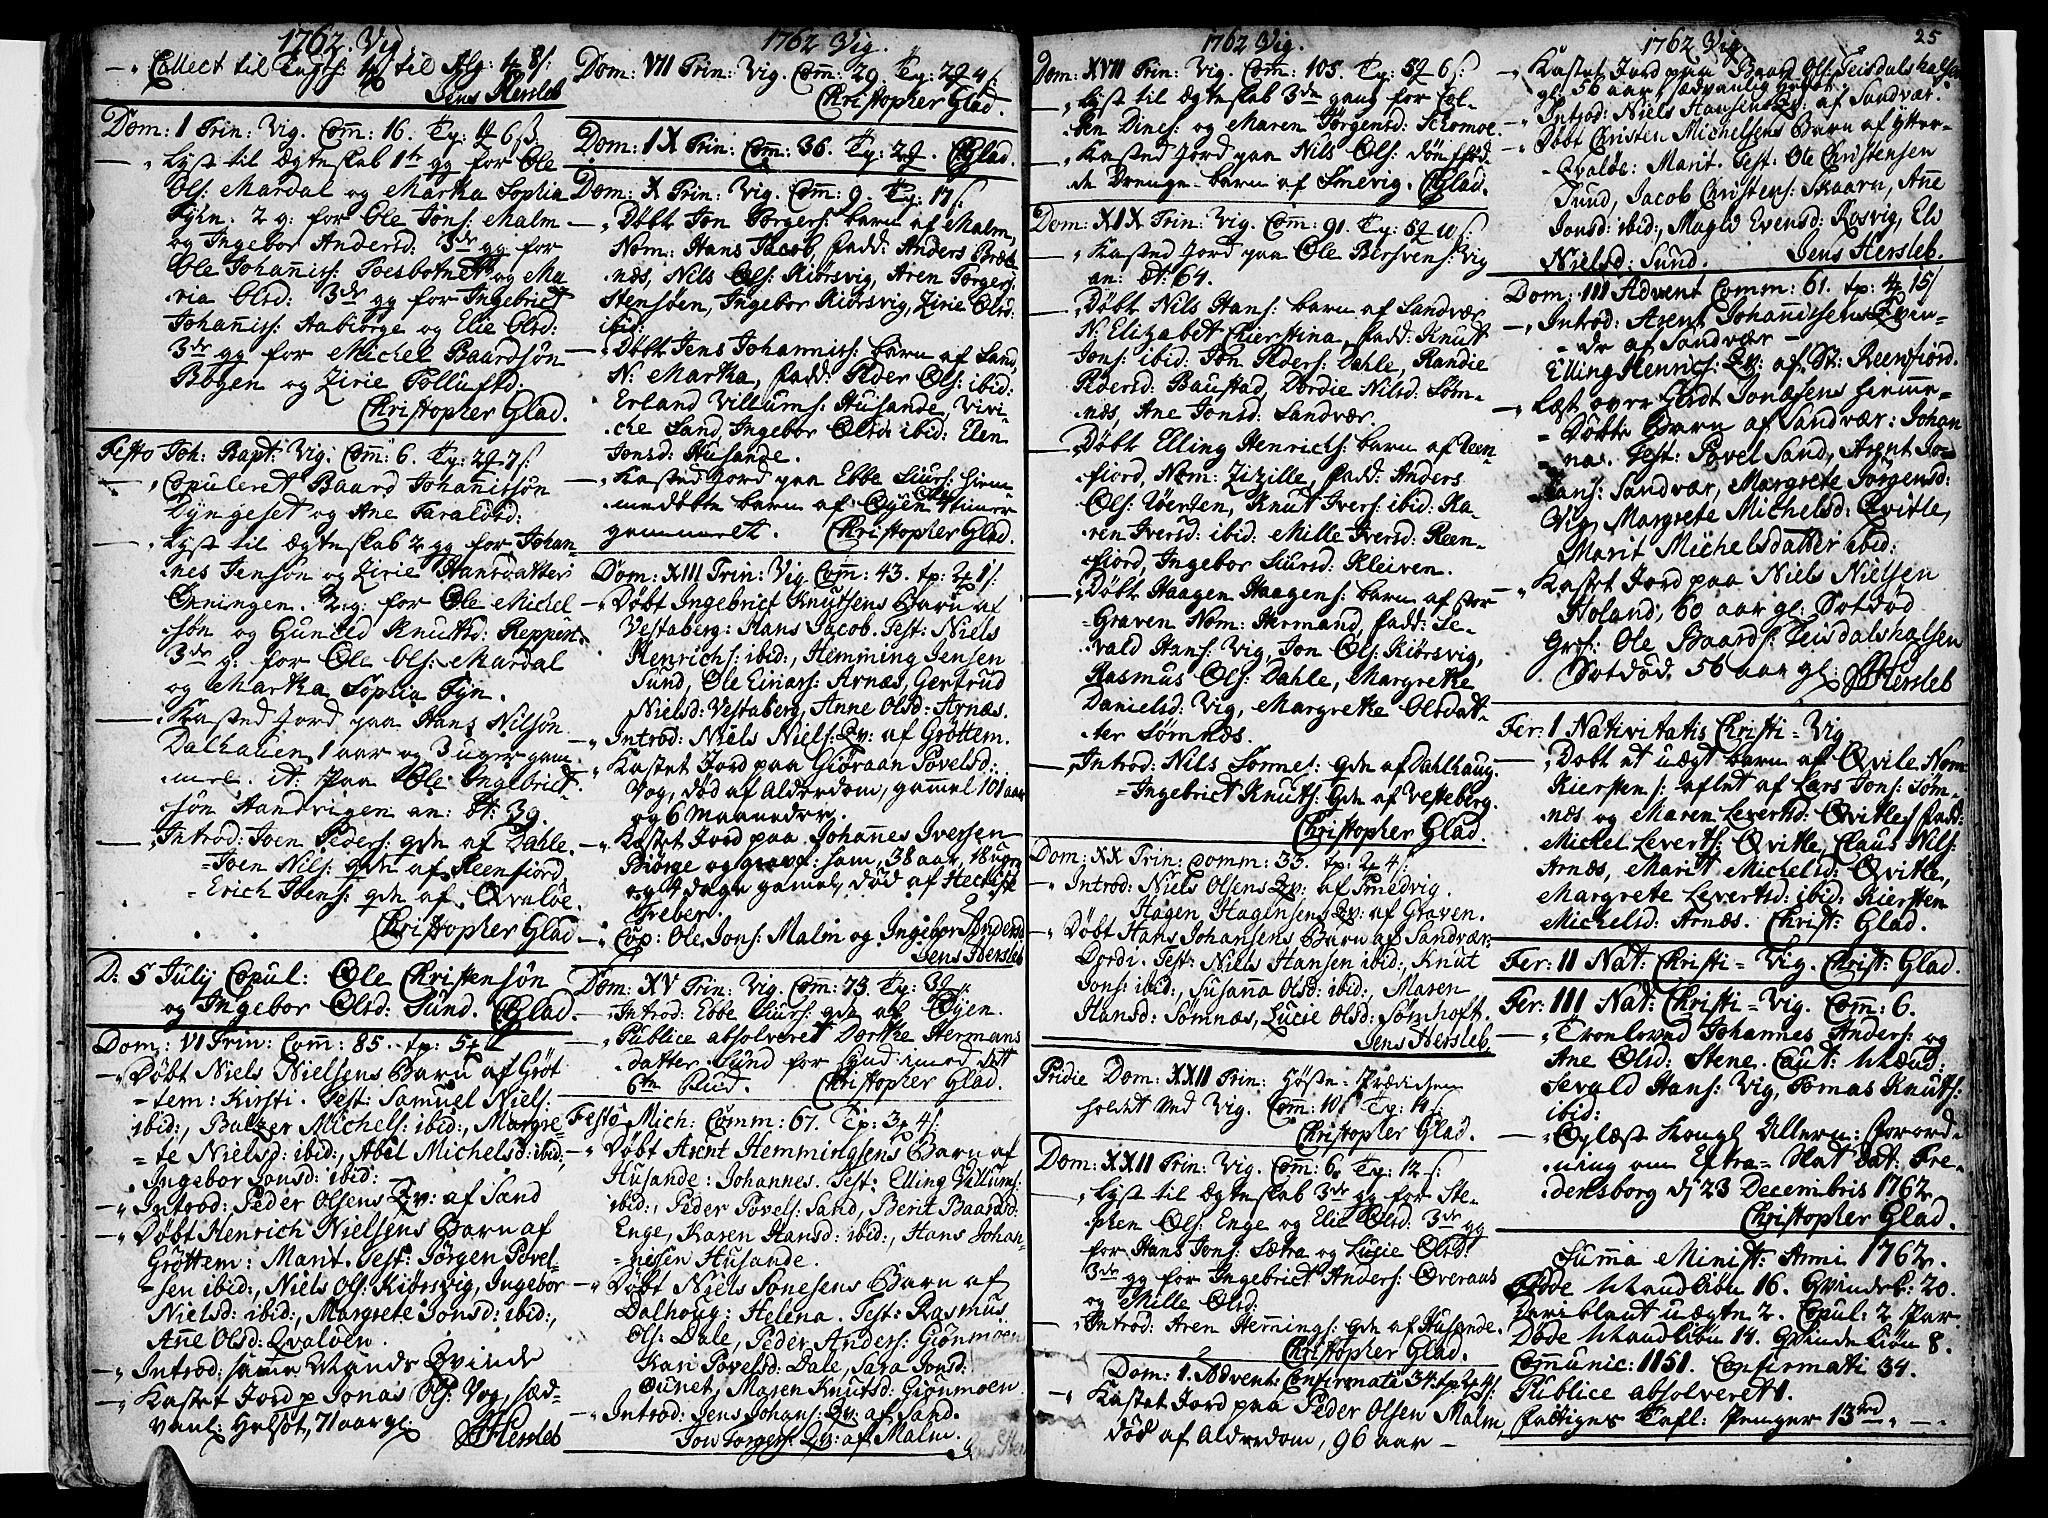 1762. Vig.
Collect til Tugth: 1 til Alg: 8 s:
Jens Hersleb
Dom: 1 Trin: Vig. Com̄: 16. Ty: 6 s.
Lyst til Ægteskab 1te gg for Ole
Ols: Mardal og Martha Sophia
Fÿen. 2 g: for Ole Jons: Malm
og Ingebor Andersd: 3de gg for
Ole Johan̄iss: Toesbotnet og Ma-
ria Olsd: 3de gg for Ingebrict
Johan̄iss: Aabiørge og Elie Olsd:
3de gg for Michel Baardsøn
Bøgen og Zirie Pollufsd:
Christopher Glad.
Festo Joh: Bapt: Vig. Com̄: 6. Ty: 7 s:
Copuleret Baard Johan̄issøn
Dÿngeset og Ane Taralsd:
Lyst til Ægteskab 2 gg for Johan-
nes Jensøn og Zirie Hansdatter
Økningen. 2 g: for Ole Michel
søn og Gunild Knutsd: Reppen
3de g: for Ole Ols: Mardal
og Martha Sophia Fÿn.
Kasted Jord paa Hans Nilsøn
Dalhauen, 1 aar og 3 uger gam-
mel. it. Paa Ole Ingebrict-
søn Aandvigen an: æt: 39.
Introd: Joen Peders: qde af Dahle.
Joen Nils: qde af Reenfiord.
Erich Ibens: qde af Qvaløe.
Christopher Glad
D: 5 July Copul: Ole Christensøn
og Ingebor Olsd: Sund. CGlad.
Dom: VI Trin: Com̄: 85. tp: 5
Døbt Niels Nielsens Barn af Grøt
tem: Kirsti. Test: Samuel Niels:
ibid:, Balzer Michels: ibid:, Margre-
te Nielsd: ibid:, Abel Michelsd: ibid:,
Ingebor Jonsd: ibid:
Introd: Peder Olsens Qv: af Sand
Døbt Henrich Nielsens Barn af
Grøttem: Marit. Test: Jørgen Povel-
sen ibid:, Niels Ols: Kiørsvig, Ingebor
Nielsd: ibid:, Margrete Jonsd: ibid:,
Ane Olsd: Qvaløen.
Introd: samme Mands Qvinde
Kastet Jord p Jonas Ols: Vog, sæd-
vanl: Helsot, 71 aar gl:
JHersleb
1762 Vig.
Dom: VII Trin: Vig. Com̄: 29. Ty: 4 s:
Christopher Glad.
Dom: IX Trin: Com̄: 36. Ty: CGlad.
Dom: X Trin: Vig. Com̄: 9. Ty: 17 s:
Døbt Jon Torgers: barn af Malm,
Nom: Hans Jacob, fadd: Anders Bræk-
næs, Nils Ols: Kiörsvig, Aren Torgers:
Stensöen, Ingebor Kiörsvig, Zirie Olsd:
ibid:
Døbt Jens Johanniss: barn af Sand,
N: Martha, fadd: Peder Ols: ibid:
Erland Villums: Husande, Vivi-
che Sand, Ingebor Olsd: ibid: Elen
Jonsd: Husande.
Kasted Jord paa Ebbe Siurs: hiem-
medøbte barn af Øÿen timer
gammelt. Christopher Glad.
Dom: XIII Trin: Vig. Com̄: 43. tp: 1 s:
Døbt Ingebrict Knutsens Barn af
Vestaberg: Hans Jacob. Test: Niels
Henrichs: ibid:, Hemming Jensen
Sund, Ole Einars: Arnæs, Gertrud
Nielsd: Vestaberg, Anne Olsd: Arnæs.
Introd: Niels Niels: Qv: af Grøttem.
Kastet Jord paa Giøraan Povelsd:
Vog, død af Alderdom, gammel 101 aar
og 6 Maaneder.
Kastet Jord paa Johannes Iversen
Biørge og graf: sam, 38 aar, 18 uger
og 4 dage gamel, død af Hectiske
Feber.
Cop: Ole Jons: Malm og Ingebor Andersd:
Jens Hersleb
Dom: XV Trin: Vig. Com̄: 73. Ty:
Introd: Ebbe Siurs: qde af Øÿen.
Publice absolveret Dorthe Hermans
datter Sund for Synd imod det
6te Bud. Christopher Glad.
Festo Mich: Comm: 67. Tp: 3 4 s:
Døbt Arent Hemmingsens Barn af
Husande: Johannes. Test: Elling Villums:
ibid:, Peder Povels: Sand, Berit Baardsd:
Enge, Karen Hansd: ibid:, Hans Johan-
nissen Husande.
Døbt Niels Tonesens Barn af
Dalhoug: Helena. Test: Rasmus
Ols: Dale, Peder Anders: Giønmoen
Kari Povelsd: Dale, Sara Jonsd:
Ounet, Maren Knutsd: Giønmoen
Introd: Jens Johans: Qv: af Sand.
Jon Torgers: Qv: af Malm.
1762 Vig.
Dom: XVII Trin: Vig. Com̄: 105. Ty: 5 6 s:
Lyst til Ægteskab 3de gang for Col-
ben Dines: og Maren Jörgensd: Schomoe.
Kasted Jord paa Nils Ols: dön fød-
de Drenge-barn af Smevig. CGlad.
Dom: XIX Trin: Vig. Com̄: 91. Ty: 5 10 s:
Kasted Jord paa Ole Bersvens: Vig
an: æt: 64.
Døbt Nils Hans: barn af Sandvær
N: Elizabet Kierstina, fadd: Knut
Jons: ibid: Jon Peders: Dahle, Randie
Pedersd: Baustad, Dordie Nilsd: Søm-
næs, Ane Jonsd: Sandvær.
Døbt Elling Henrichs: barn af Reen-
fiord, Nom: Zizille, fadd: Anders
Ols: Uøensen, Knut Ivers: ibid: Ka-
ren Iversd: ibid: Mille Iversd: Reen-
fiord, Ingebor Siursd: Kleiven.
Døbt Haagen Haagens: barn af
Graven Nom: Hermand, fadd: Se-
vald Hans: Vig, Jon Ols: Kiörsvig,
Rasmus Ols: Dahle, Margrethe
Danielsd: Vig, Margrethe Olsdat-
ter Sømnæs.
Introd: Nils Tonnes: qde af Dahlhaug.
Ingebrict Knuts: qde af Vesteberg.
Christopher Glad.
Dom: XX Trin: comm: 33. tp: 2 4 s:
Introd: Niels Olsens Qv: af Smedvig.
Hagen Hagensens Qv: af Graven.
Døbt Hans Johansens Barn af Sandvær:
Dordi. Test: Niels Hansen ibid:, Knut
Jons: ibid:, Susanna Olsd: ibid:, Maren
Hansd: Sømnæs, Lucie Olsd: Sømhoft.
Jens Hersleb.
Pridie Dom: XXII Trin: Høste-Prædicken
holdet ved Vig. Com̄: 10. Ty: 4 s:
Christopher Glad.
Dom: XXII Trin: Vig. Com̄: 6. Ty: 12 s:
Lyst til Ægteskab 3de gg for Ste-
phen Ols: Enge og Elie Olsd: 3de gg
for Hans Jons: Sætra og Lucie Olsd:
3de gg for Ingebrict Anders: Øveraas
og Mille Olsd:
Introd: Aren Hemnings: qde af Husande.
Christopher Glad.
Dom: 1. Advent: Confirmate 34. tp: 2 4 s:
Kastet Jord paa Peder Olsen Malm,
død af Alderdom, 96 aar
1762 Vig.
25
Kastet Jord paa Baard Ols: Teisdalshalsen
gl: 56 aar, sædvanlig
Introd: Niels Hansens Qv: af Sandvær.
Døbt Christen Michelsens Barn af Ytter-
Qvaløe: Marit. Test: Ole Christensen
Sund, Jacob Christens: Skaarn, Ane
Jonsd: ibid:, Magld Evensd: Rosvig, Els
Nielsd: Sund. Jens Hersleb.
Dom: III Advent Comm: 61. tp: 4 15 s
Introd: Arent Johannissens Qvin-
de af Sandvær
Elling Henrichs: Qv: af St: Reenfiörd.
Læst over Arent Jonæsens hjemme-
Døbte Barn af Sandvær: Johan
na. Test: Povel Sand, Arent Jo-
hans: Sandvær, Margrete Jørgensd:
Vig, Margrete Michelsd: Qvitle,
Marit Michelsdatter ibid:
Kastet Jord paa Niels Nielsen
Holand, 60 aar gl: Sotdød
Grf: Ole Baards: Teisdalshalsen
Sotdød. 56 aar gl: JHersleb
Fer: I Nativitatis Christi = Vig
Døbt et uægt barn af Qvitle Nom:
Kiersten, aflet af Lars Jons: Søm-
næs og Maren Levertsd: Qvitle, fadd:
Michel Leverts: Qvitle, Claus Nils:
Arnæs, Marit Michelsd: Qvitle,
Margrete Levertsd: ibid: Kiersten
Michelsd: Arnæs. Christ: Glad.
Fer: II Nat: Christi = Vig. Christ: Glad.
Fer: III Nat: Christi = Vig. Com̄: 6.
Trolovad Johannes Anders: og
Ane Olsd: Stene. Caut: Mænd:
Sevald Hans: Vig, Tomas Knuts:
ibid:
Oplæst Kongl Allern: forord-
ning om Extra-Skat dat: Fre-
densborg d 23 Decembris 1762.
Christopher Glad.
Summa Minist: Anni 1762.
Fødde Mandkiön 16. Qvindek: 20.
deriblant uægte 2. Copul: 2 Par.
Døde Mandkiön 14. Qvindekiön 8.
Com̄unic: 1151. Confirmati 34.
Publice absolveret 1.
Fattiges Tafl: Penger 13 rd